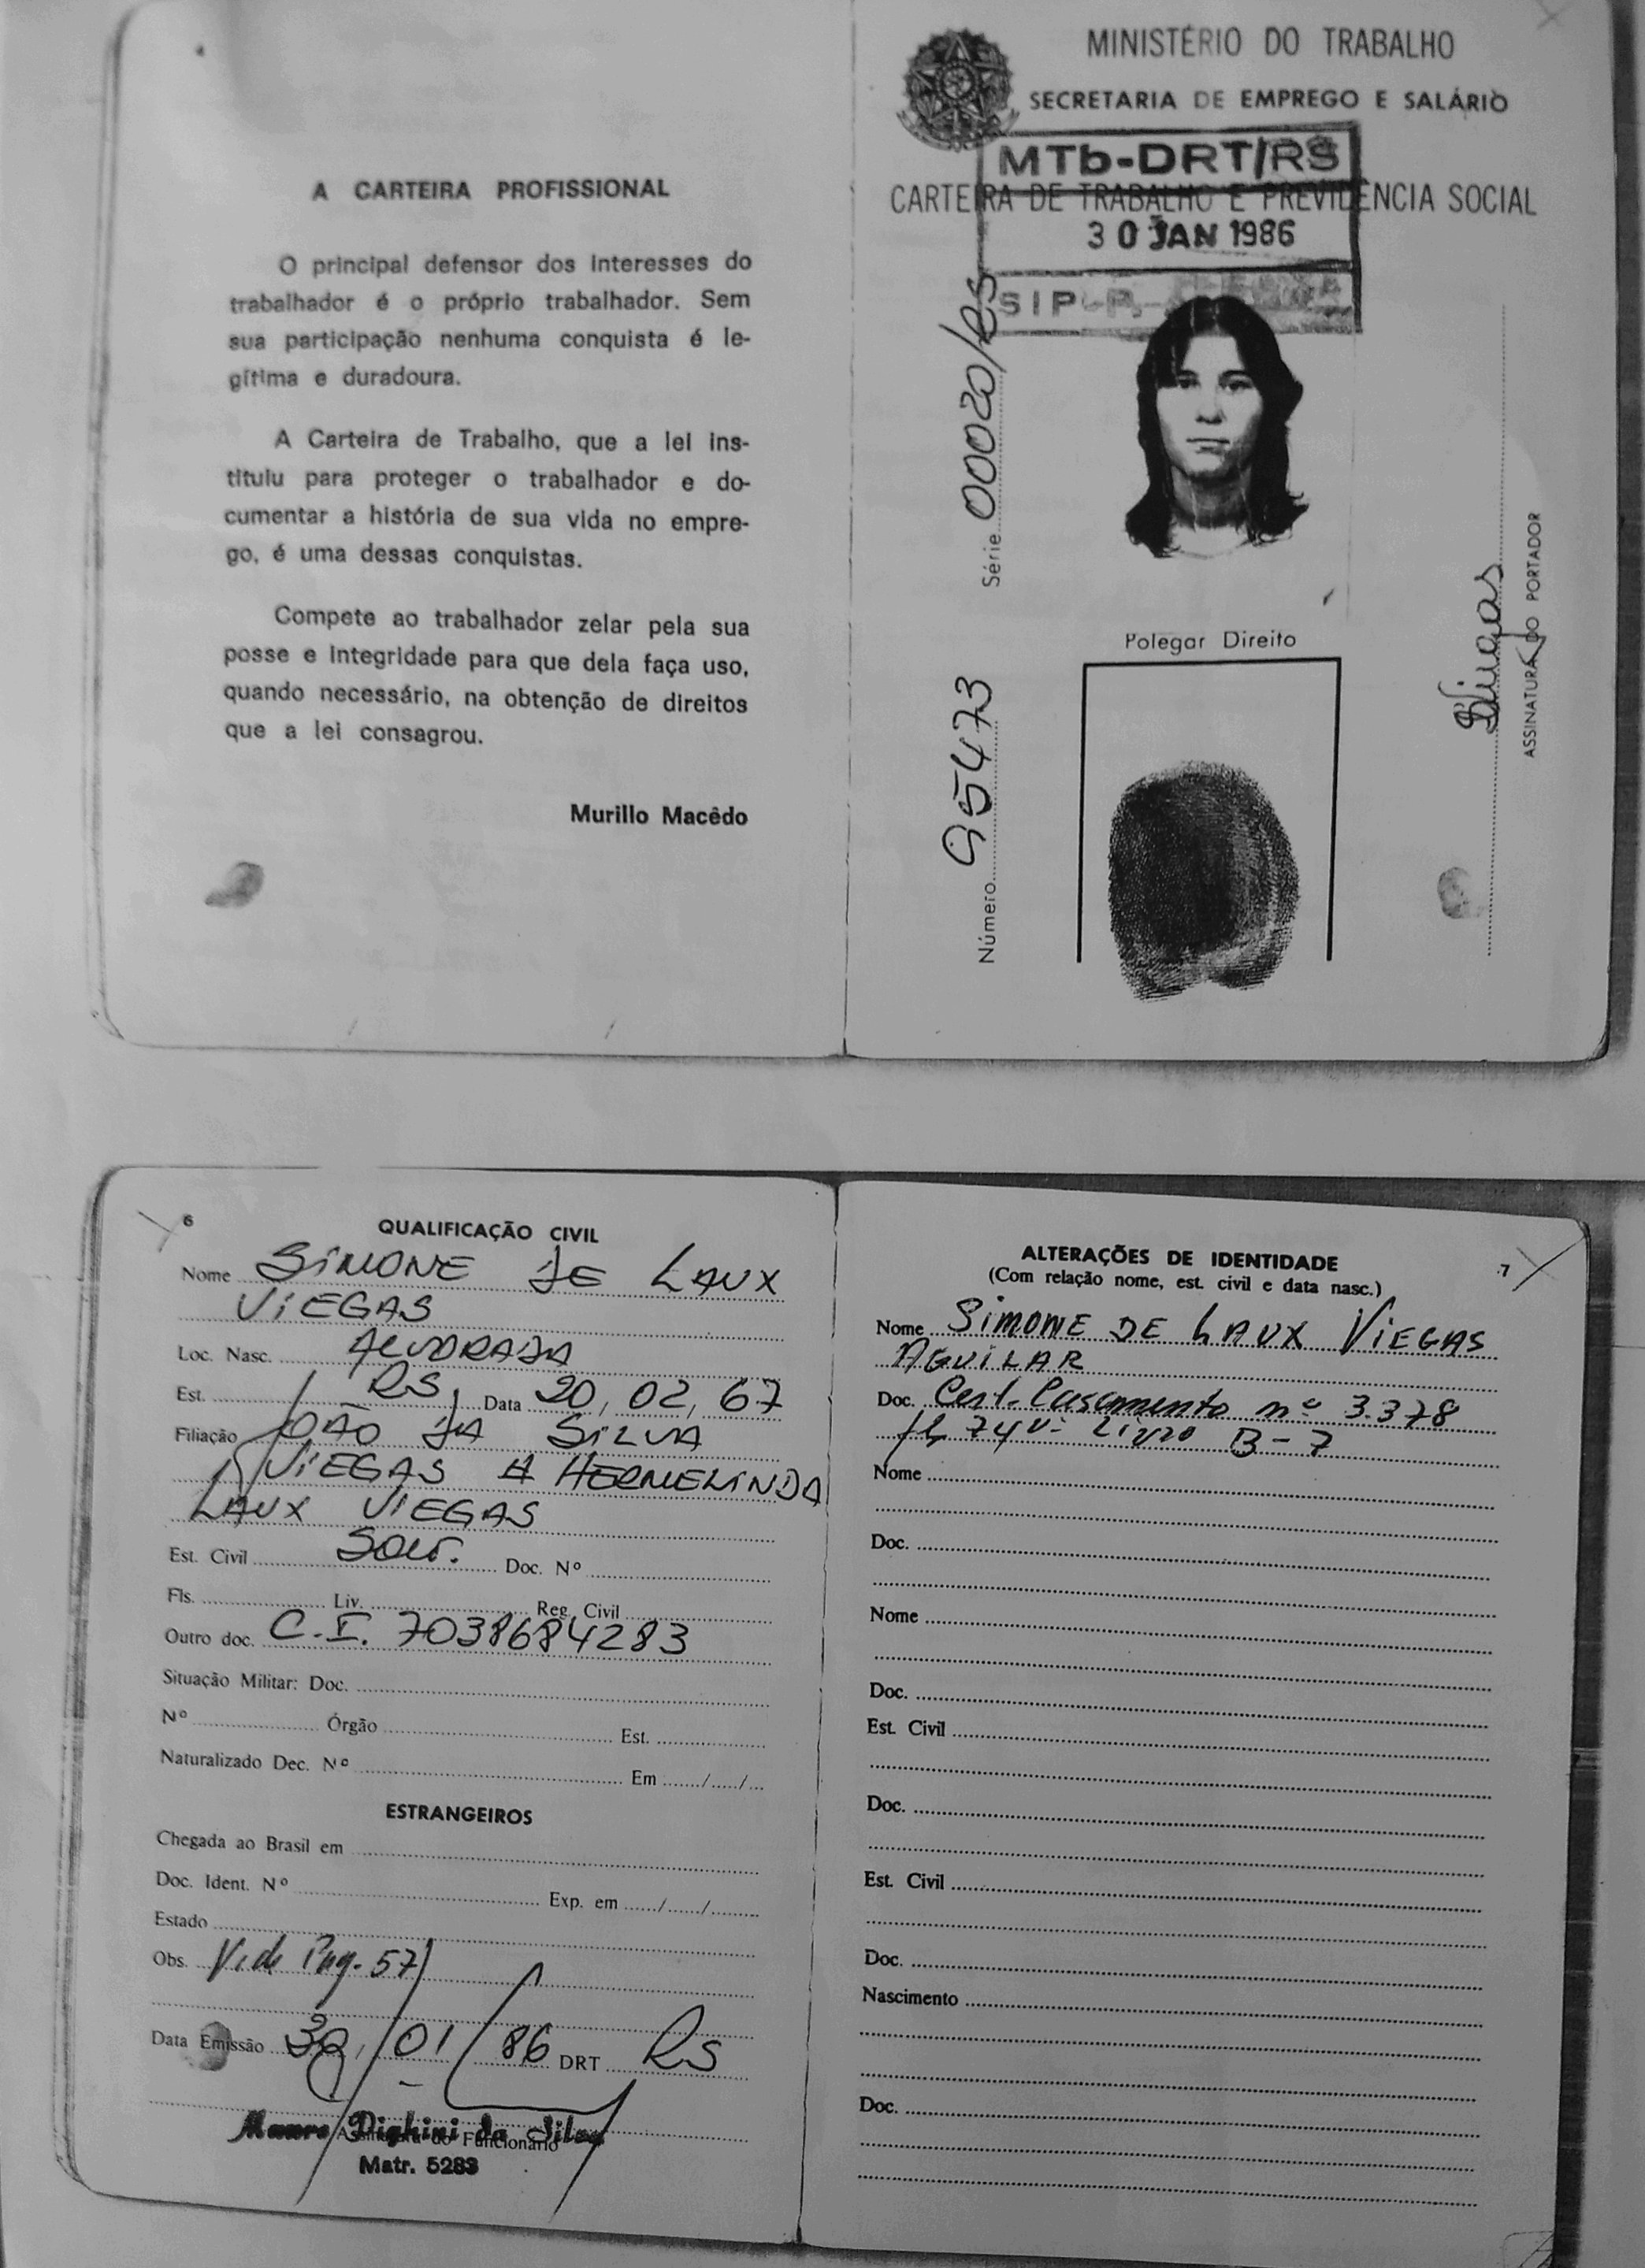 A CARTEIRA PROFISSIONAL
O principal defensor dos interesses do
trabalhador é o próprio trabalhador. Sem
sua participação nenhuma conquista é le-
gítima e duradoura.
A Carteira de Trabalho, que a lei ins-
tituiu para proteger o trabalhador e do-
cumentar a história de sua vida no empre-
go, é uma dessas conquistas.
Compete ao trabalhador zelar pela sua
posse e integridade para que dela faça uso,
quando necessário, na obtenção de direitos
que a lei consagrou.
Murillo Macêdo
MINISTÉRIO DO TRABALHO
SECRETARIA DE EMPREGO E SALÁRIO
MTb-DRT/RS
CARTEIRA DE TRABALHO E PREVIDÊNCIA SOCIAL
30 JAN 1986
SIP-P.
Número 95473 Série 00020/RS
Polegar Direito
Viegas
ASSINATURA DO PORTADOR
6
QUALIFICAÇÃO CIVIL
Nome SIMONE DE LAUX
VIEGAS
Loc. Nasc. ALVORADA
Est. RS Data 20, 02, 67
Filiação JOÃO DA SILVA
VIEGAS # HERMELINDA
LAUX VIEGAS
Est. Civil Solt. Doc. Nº
Fls. Liv. Reg. Civil
Outro doc. C.I. 7038684283
Situação Militar: Doc.
Nº Órgão Est.
Naturalizado Dec. Nº Em / /
ESTRANGEIROS
Chegada ao Brasil em
Doc. Ident. Nº Exp. em / /
Estado
Obs. Vide Pag. 57
Data Emissão 30/01/86 DRT RS
Mauro Dighini da Silva
Assinatura do Funcionário
Matr. 5283
7
ALTERAÇÕES DE IDENTIDADE
(Com relação nome, est. civil e data nasc.)
Nome SIMONE DE LAUX VIEGAS
AGUILAR
Doc. Cert. Casamento nº 3.378
fl. 74v- Livro B-7
Nome
Doc.
Nome
Doc.
Est. Civil
Doc.
Est. Civil
Doc.
Nascimento
Doc.